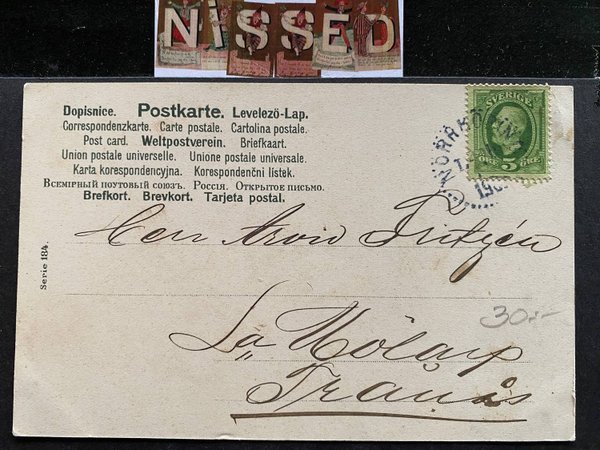 NiSSED
Dopisnice. Postkarte. Levelező-Lap.
Correspondenzkarte. Carte postale. Cartolina postale.
Post card. Weltpostverein. Briefkaart.
Union postale universelle. Unione postale universale.
Karta korespondencyjna. Korespondenční lístek.
Всемірный поутовый союзъ. Россія. Открытое письмо.
Brefkort. Brevkort. Tarjeta postal.
SVERIGE
ÖRE 5 ÖRE
Serie 184.
Herr Arvid Fritzén
30:-
La Hölarp
Tranås